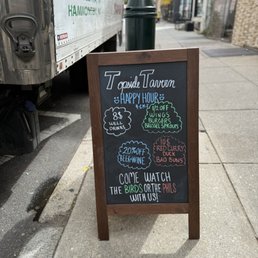 Topside Tavern
HAPPY HOUR
8$
WELL
DRINKS
$ OFF
WINGS
BURGERS
BRUSSEL SPROUTS
20% OFF
BEER & WINE
10$
FRIED CHERRY
DUCK
BAO BUNS
COME WATCH
THE BIRDS OR THE PHILS
WITH US!